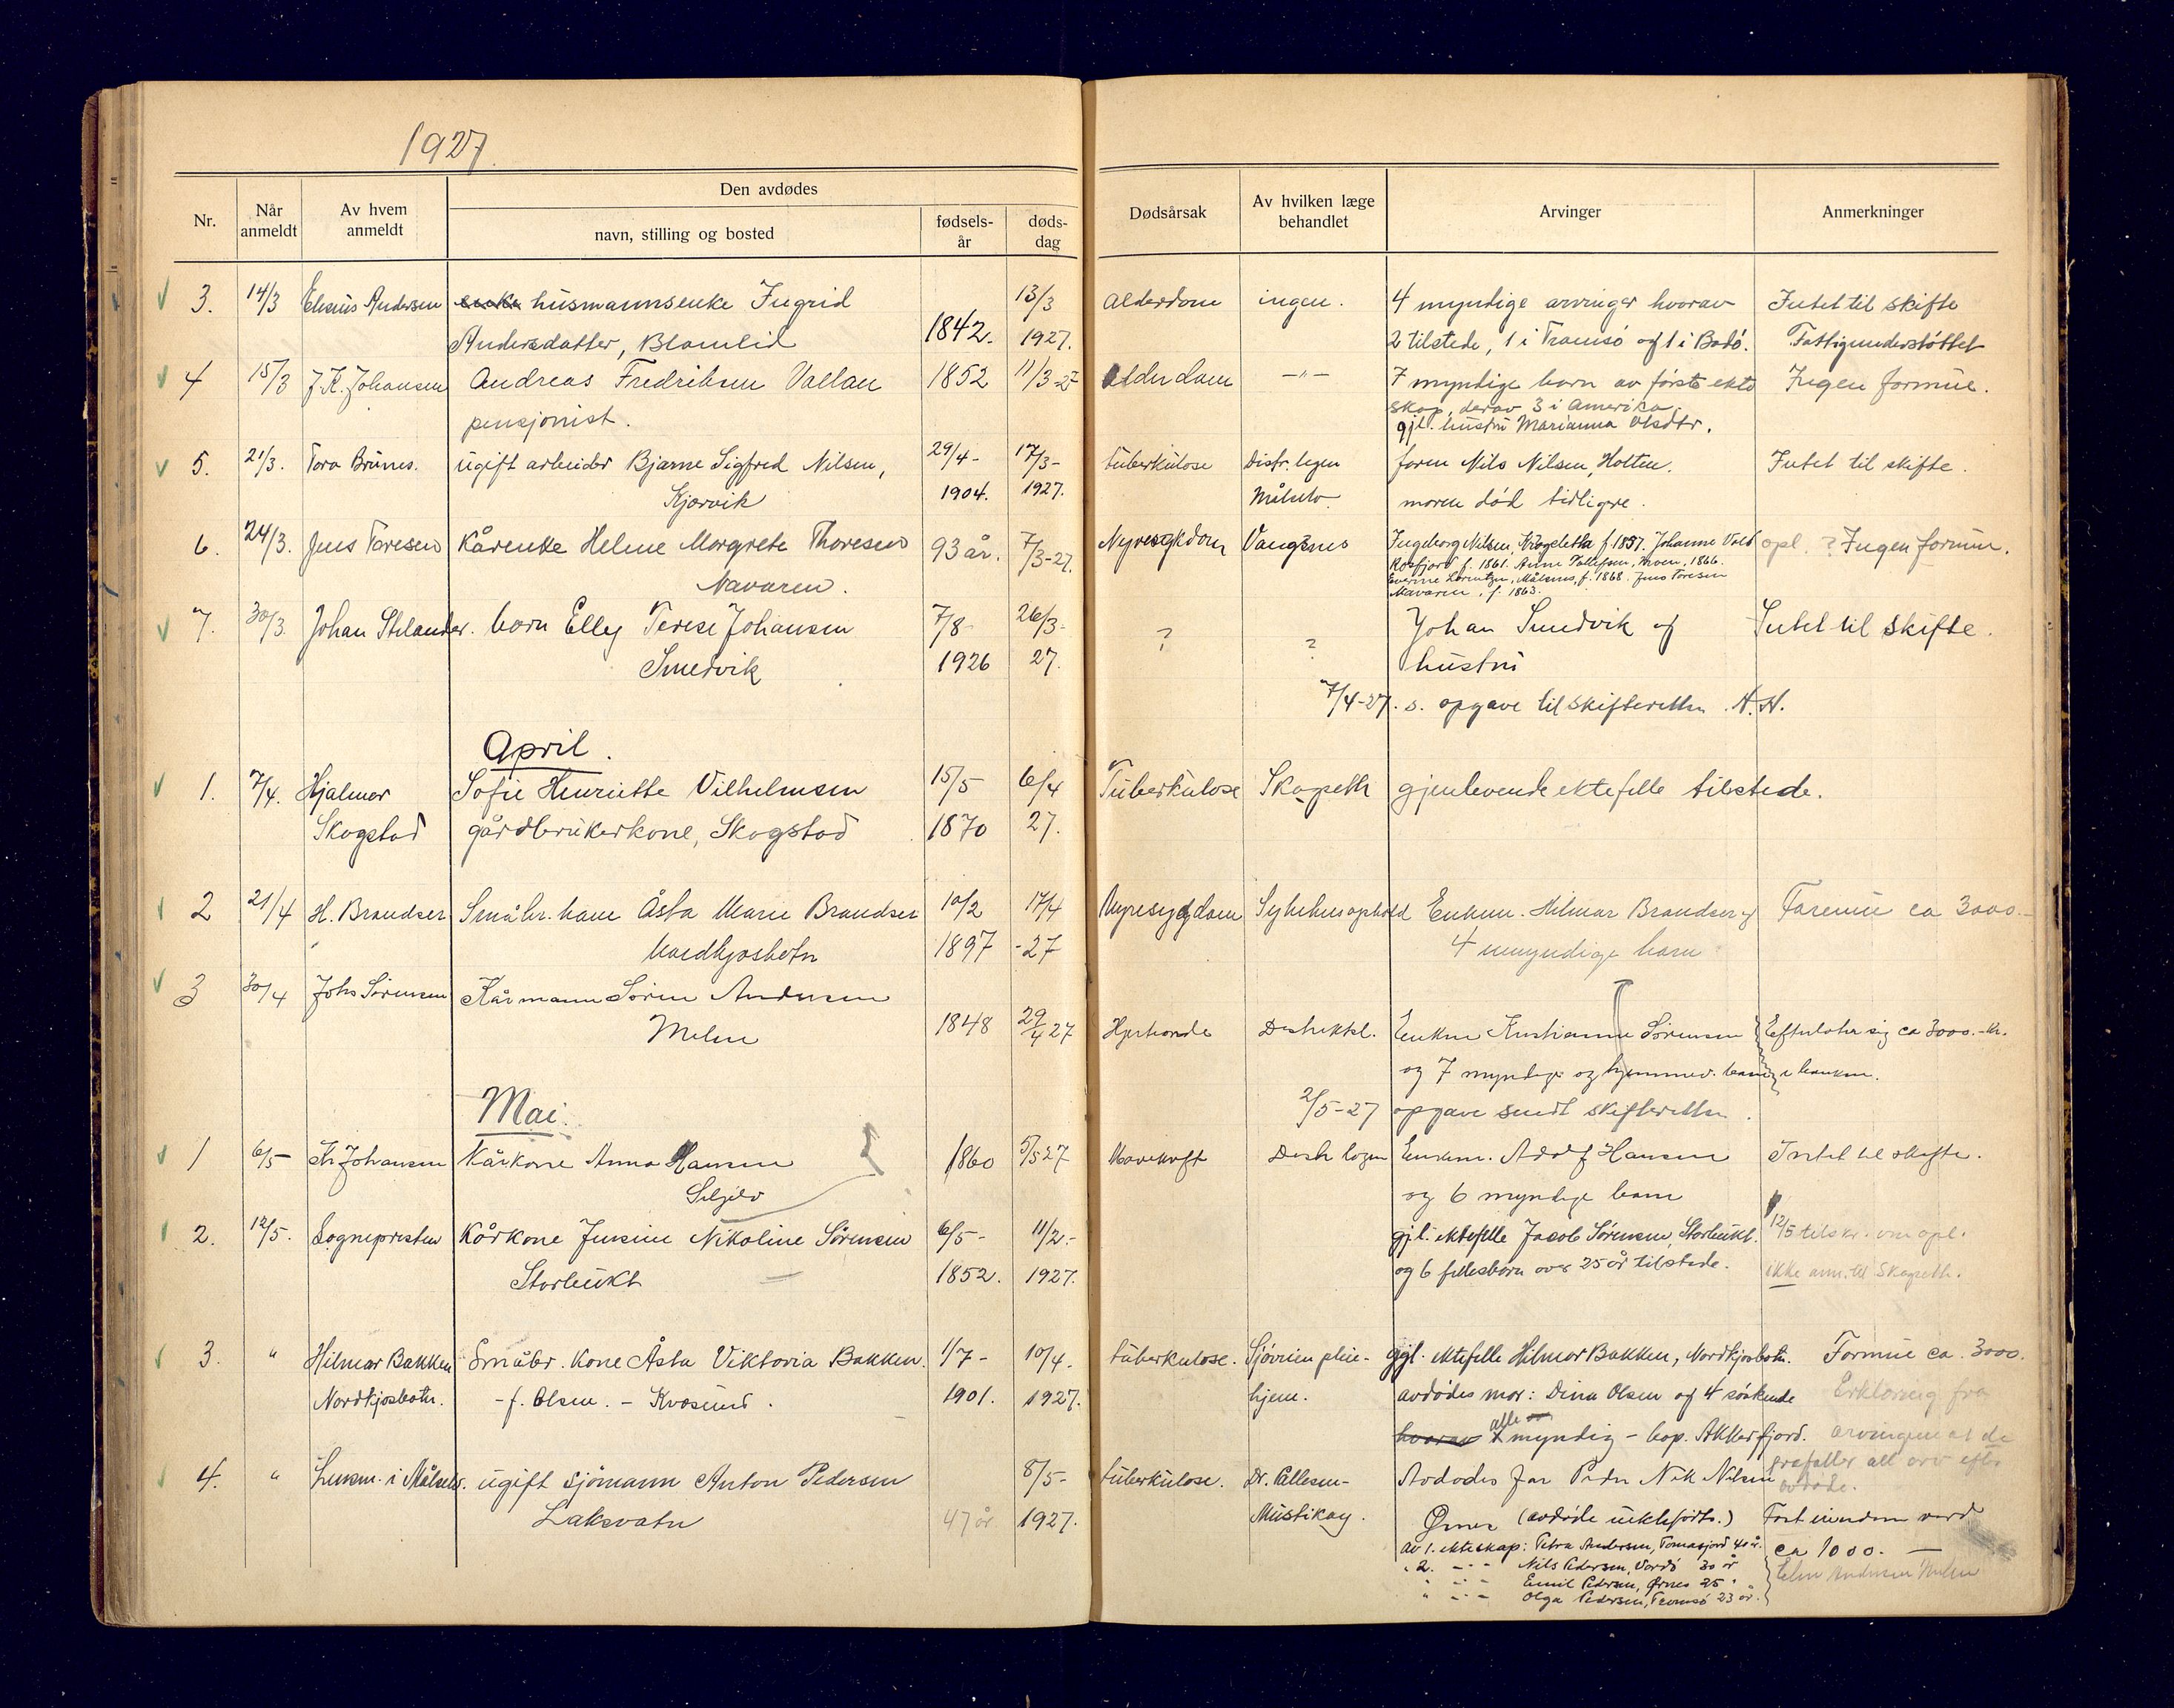 1927.
Den avdødes
Nr.
Når anmeldt
Av hvem anmeldt
navn, stilling og bosted
fødsels-år
døds-dag
Dødsårsak
Av hvilken læge behandlet
Arvinger
Anmerkninger
3. 14/3 Elisius Andersen enke husmannsenke Ingrid 13/3 alderdom ingen. 4 myndige arvinger hvorav Intet til skifte
Andersdatter, Blomlid 1842. 1927. 2 tilstede, 1 i Tromsø og 1 i Bodø. Fattigunderstøttet
4 15/3 J. K. Johansen Andreas Fredriksen Vollan 1852 11/3-27 Alderdom -"- 7 myndige barn av første ekte Ingen formue.
skap, derav 3 i Amerika.
pensjonist. gjl. hustru Marianna Olsdtr.
5. 21/3. Tora Brunes. ugift arbeider Bjarne Sigfred Nilsen, 29/4- 17/3- tuberkulose Distr. legen faren Nils Nilsen, Holten. Intet til skifte.
Kjørvik 1904. 1927. Målselv. moren død tidligere.
6. 24/3. Jens Toresen Kårenke Helene Margrete Thoresen 93 år. 7/3-27. Nyresykdom Vangsnes Ingeborg Nilsen, f. 1857. Johanne Vold opl. ? Ingen formue.
Rossfjord f. 1861. Anne Tollefsen, Moen, 1866.
Navaren. Everine Lorentzen, Målsnes, f. 1868. Jens Toresen
Navaren, f. 1863.
7. 30/3. Johan Stelander. barn Elly Terese Johansen 7/8- 26/3- ? ? Johan Smedvik og Intet til skifte.
Smedvik 1926 27. hustru
7/4-27. s. opgave til skifteretten. A. H.
April.
1. 7/4. Hjalmar Sofie Henriette Vilhelmsen 15/5- 6/4 Tuberkulose Skogseth gjenlevende ektefelle tilstede.
Skogstad gårdbrukerkone, Skogstad 1870 27.
2 21/4 H. Brandser Småbr. kone Åsta Marie Brandser 10/2 17/4 Nyresygdom Sykehusophold Enkem. Hilmar Brandser og Formue ca 3000.-
Nordkjosbotn 1897 -27 4 umyndige barn
3 30/4 Johs Sørensen Kårmann Søren Andersen
Melen 1848 29/4 27 Hjerteonde Distriktsl. Enken Kristianne Sørensen Efterlater sig ca 3000.- kr.
og 7 myndige og hjemmev. barn i banken.
2/5-27 opgave sendt skifteretten.
Mai.
1 6/5- Kr Johansen Kårkone Anna Hansen 1860 5/5 27 Mavekreft Distr legen Enkem. Adolf Hansen Intet til skifte.
og 6 myndige barn
2. 12/5. Sognepresten Kårkone Jensine Nikoline Sørensen 6/5- 11/2.- gjl. ektefelle Jacob Sørensen, Storbukt. 12/5 tilskr. om opl.
Storbukt 1852. 1927. og 6 fellesbarn over 25 år tilstede. ikke anm. til Skogseth.
3. " Hilmar Bakken Småbr. kone Åsta Viktoria Bakken. 1/7- 10/4. tuberkulose. Sjøvegen pleie- gjl. ektefelle Hilmar Bakken, Nordkjosbotn. Formue ca. 3000.
Nordkjosbotn. -f. Olsen. - Kvæsund. 1901. 1927. hjem. avdødes mor: Dina Olsen og 4 søskende Erklæring fra
hvorav alle myndig - bop. Akkerfjord. arvingene at de
frafaller all arv efter
avdøde.
4. " Lensm. i Målselv. ugift sjømann Anton Pedersen 8/5- tuberkulose. Dr. Pallesen- Avdødes far Peder Nik Nilsen
Laksvatn 47 år 1927. Mustikay. Ørnes (avdøde uekteføds.) Fast eiendom verd
Av 1. ekteskap: Petra Andersen, Tomasjord 40 år. ca 1000.-
" 2. -"- Nils Pedersen, Vardø 30 år
" -"- Emil Pedersen, Ørnes 25 "
" -"- Olga Pedersen, Tromsø 23 år.